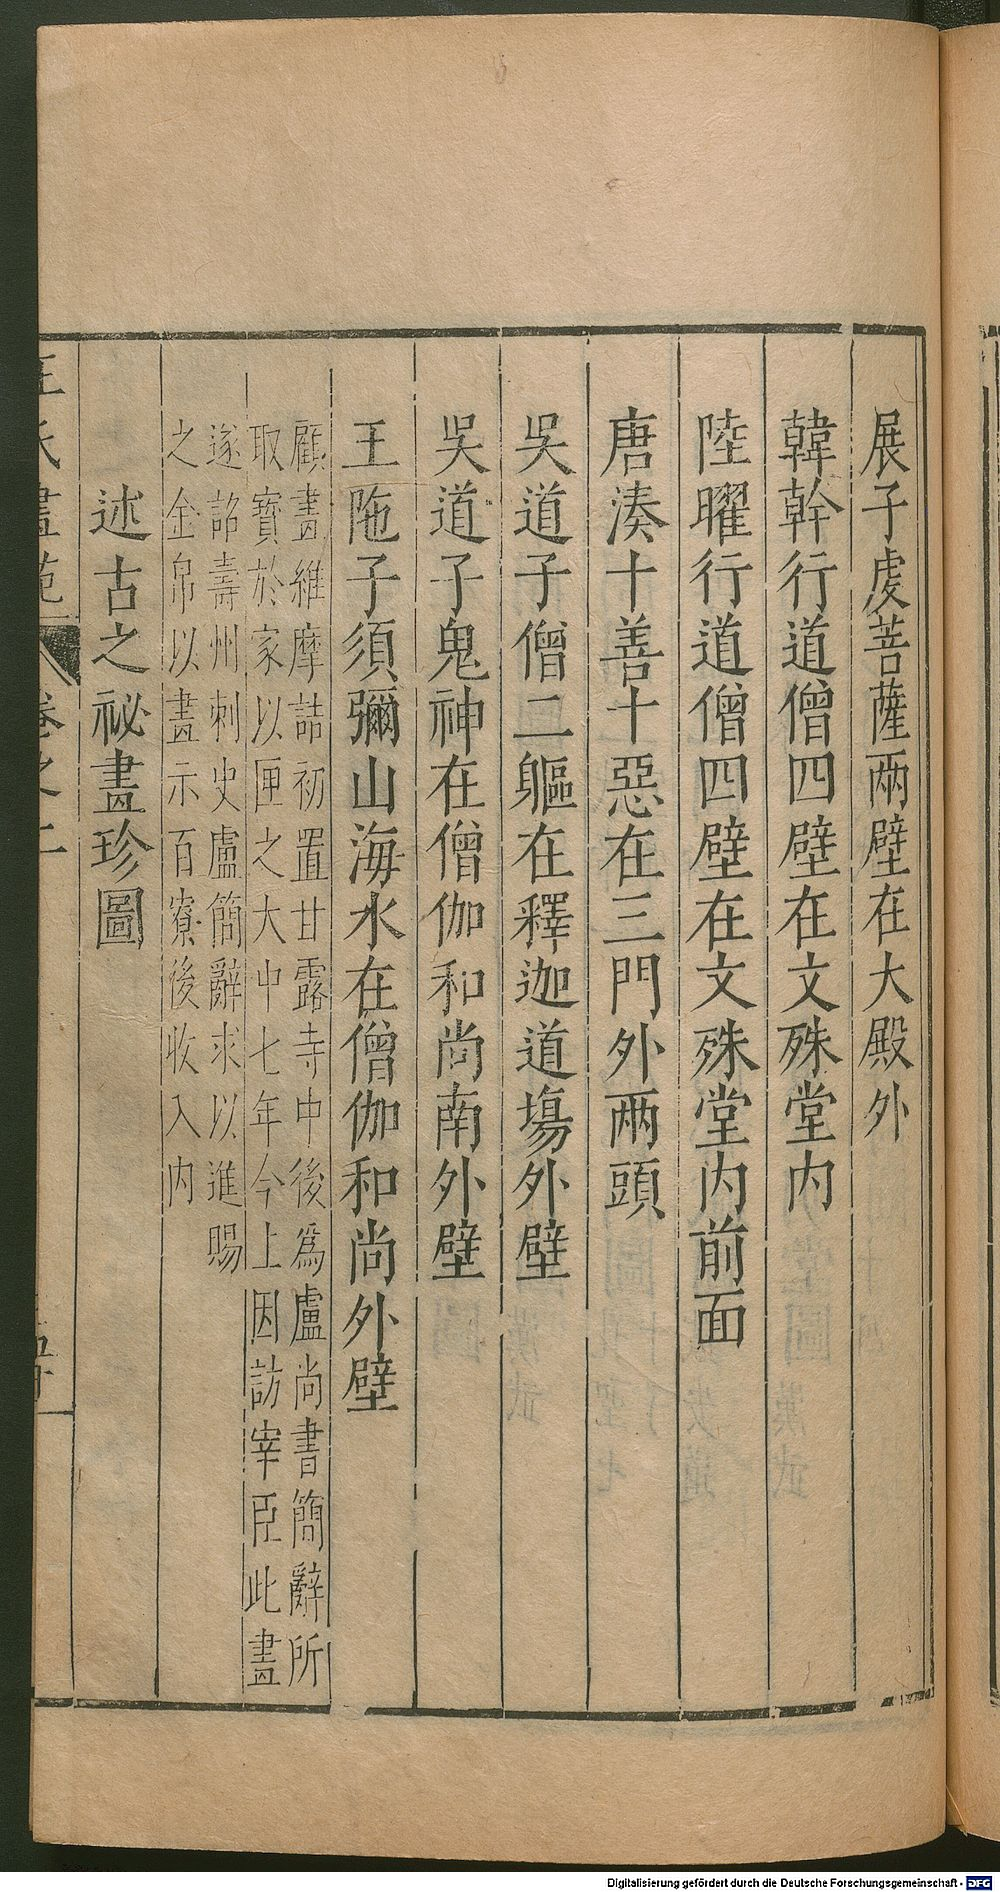 展子虔菩薩兩壁在大殿外
韓幹行道僧四壁在文殊堂内
陸曜行道僧四壁在文殊堂内前面
唐湊十善十惡在三門外兩頭
吳道子僧二軀在釋迦道場外壁
吳道子鬼神在僧伽和尚南外壁
王陁子須彌山海水在僧伽和尚外壁
顧畫維摩詰初置甘露寺中後爲盧尚書簡辭所
取寳於家以匣之大中七年今上因訪宰臣此畫
遂詔壽州刺史盧簡辭求以進賜
之金帛以畫示百寮後收入内
述古之祕畫珍圖
王氏畫苑 卷之二
Digitalisierung gefördert durch die Deutsche Forschungsgemeinschaft - DFG